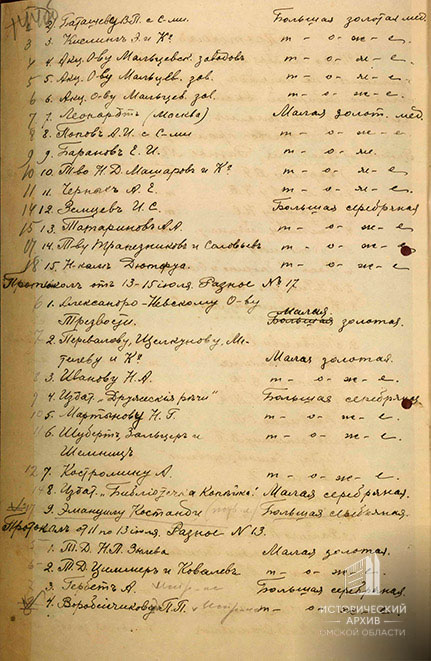 2 2. Баташеву В.П. с С-ми Большая золотая мед.
3 3. Кислинг Э. и К° т-о-ж-е
4 4. Акц. О-ву Мальцевск. заводов т-о-ж-е
5 5. Акц. О-ву Мальцев. зав. т-о-ж-е
6 6. Акц. О-ву Мальцев. зав. т-о-ж-е
7 7. Леопардт (Москва) Малая золот. мед.
8 8. Попов А.И. с С-ми т-о-ж-е
9 9. Баранов Е.И. т-о-ж-е
10 10. Т-во Н.Д. Машаров и К° т-о-ж-е
11 11. Черных А.Е. т-о-ж-е
14 12. Земцев И.С. Большая серебряная
15 13. Татаринов А.А. т-о-ж-е
17 14. Т-ву Трапезников и Соловьев т-о-ж-е
18 15. т-о-ж-е
Протокол от 13-15 июля. Разное № 17.
6 1. Александро-Невскому О-ву Малая
Трезвости. Большая золотая.
7 2. Первалову, Щелкунову, Ме-
телеву и К° Малая золотая.
8 3. Иванову Н.А. т-о-ж-е
9 4. Издат. „Дружеския речи" Большая серебряная
10 5. Мартьянову Н.Г. т-о-ж-е
11 6. Шуберт, Зальцер и
т-о-ж-е
12 7. Костромину А. т-о-ж-е
14 8. Издат. „Библиотечка Копейка". Малая серебряная.
17 9. Эмануилу Костанди Большая серебряная.
Протокол от 11 по 13 июля. Разное № 13.
1. Т.Д. Н.П. Малая золотая.
2. Т.Д. Циммер и Ковалев т-о-ж-е
3. Гербет А. Большая серебряная.
4. Воробейчикову П.П. т-о-ж-е
ИСТОРИЧЕСКИЙ
АРХИВ
ОМСКОЙ ОБЛАСТИ